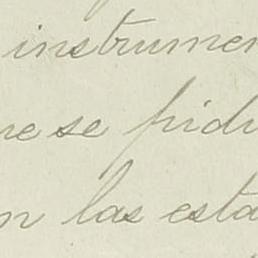 instrumen
ne se pidi
n las esta